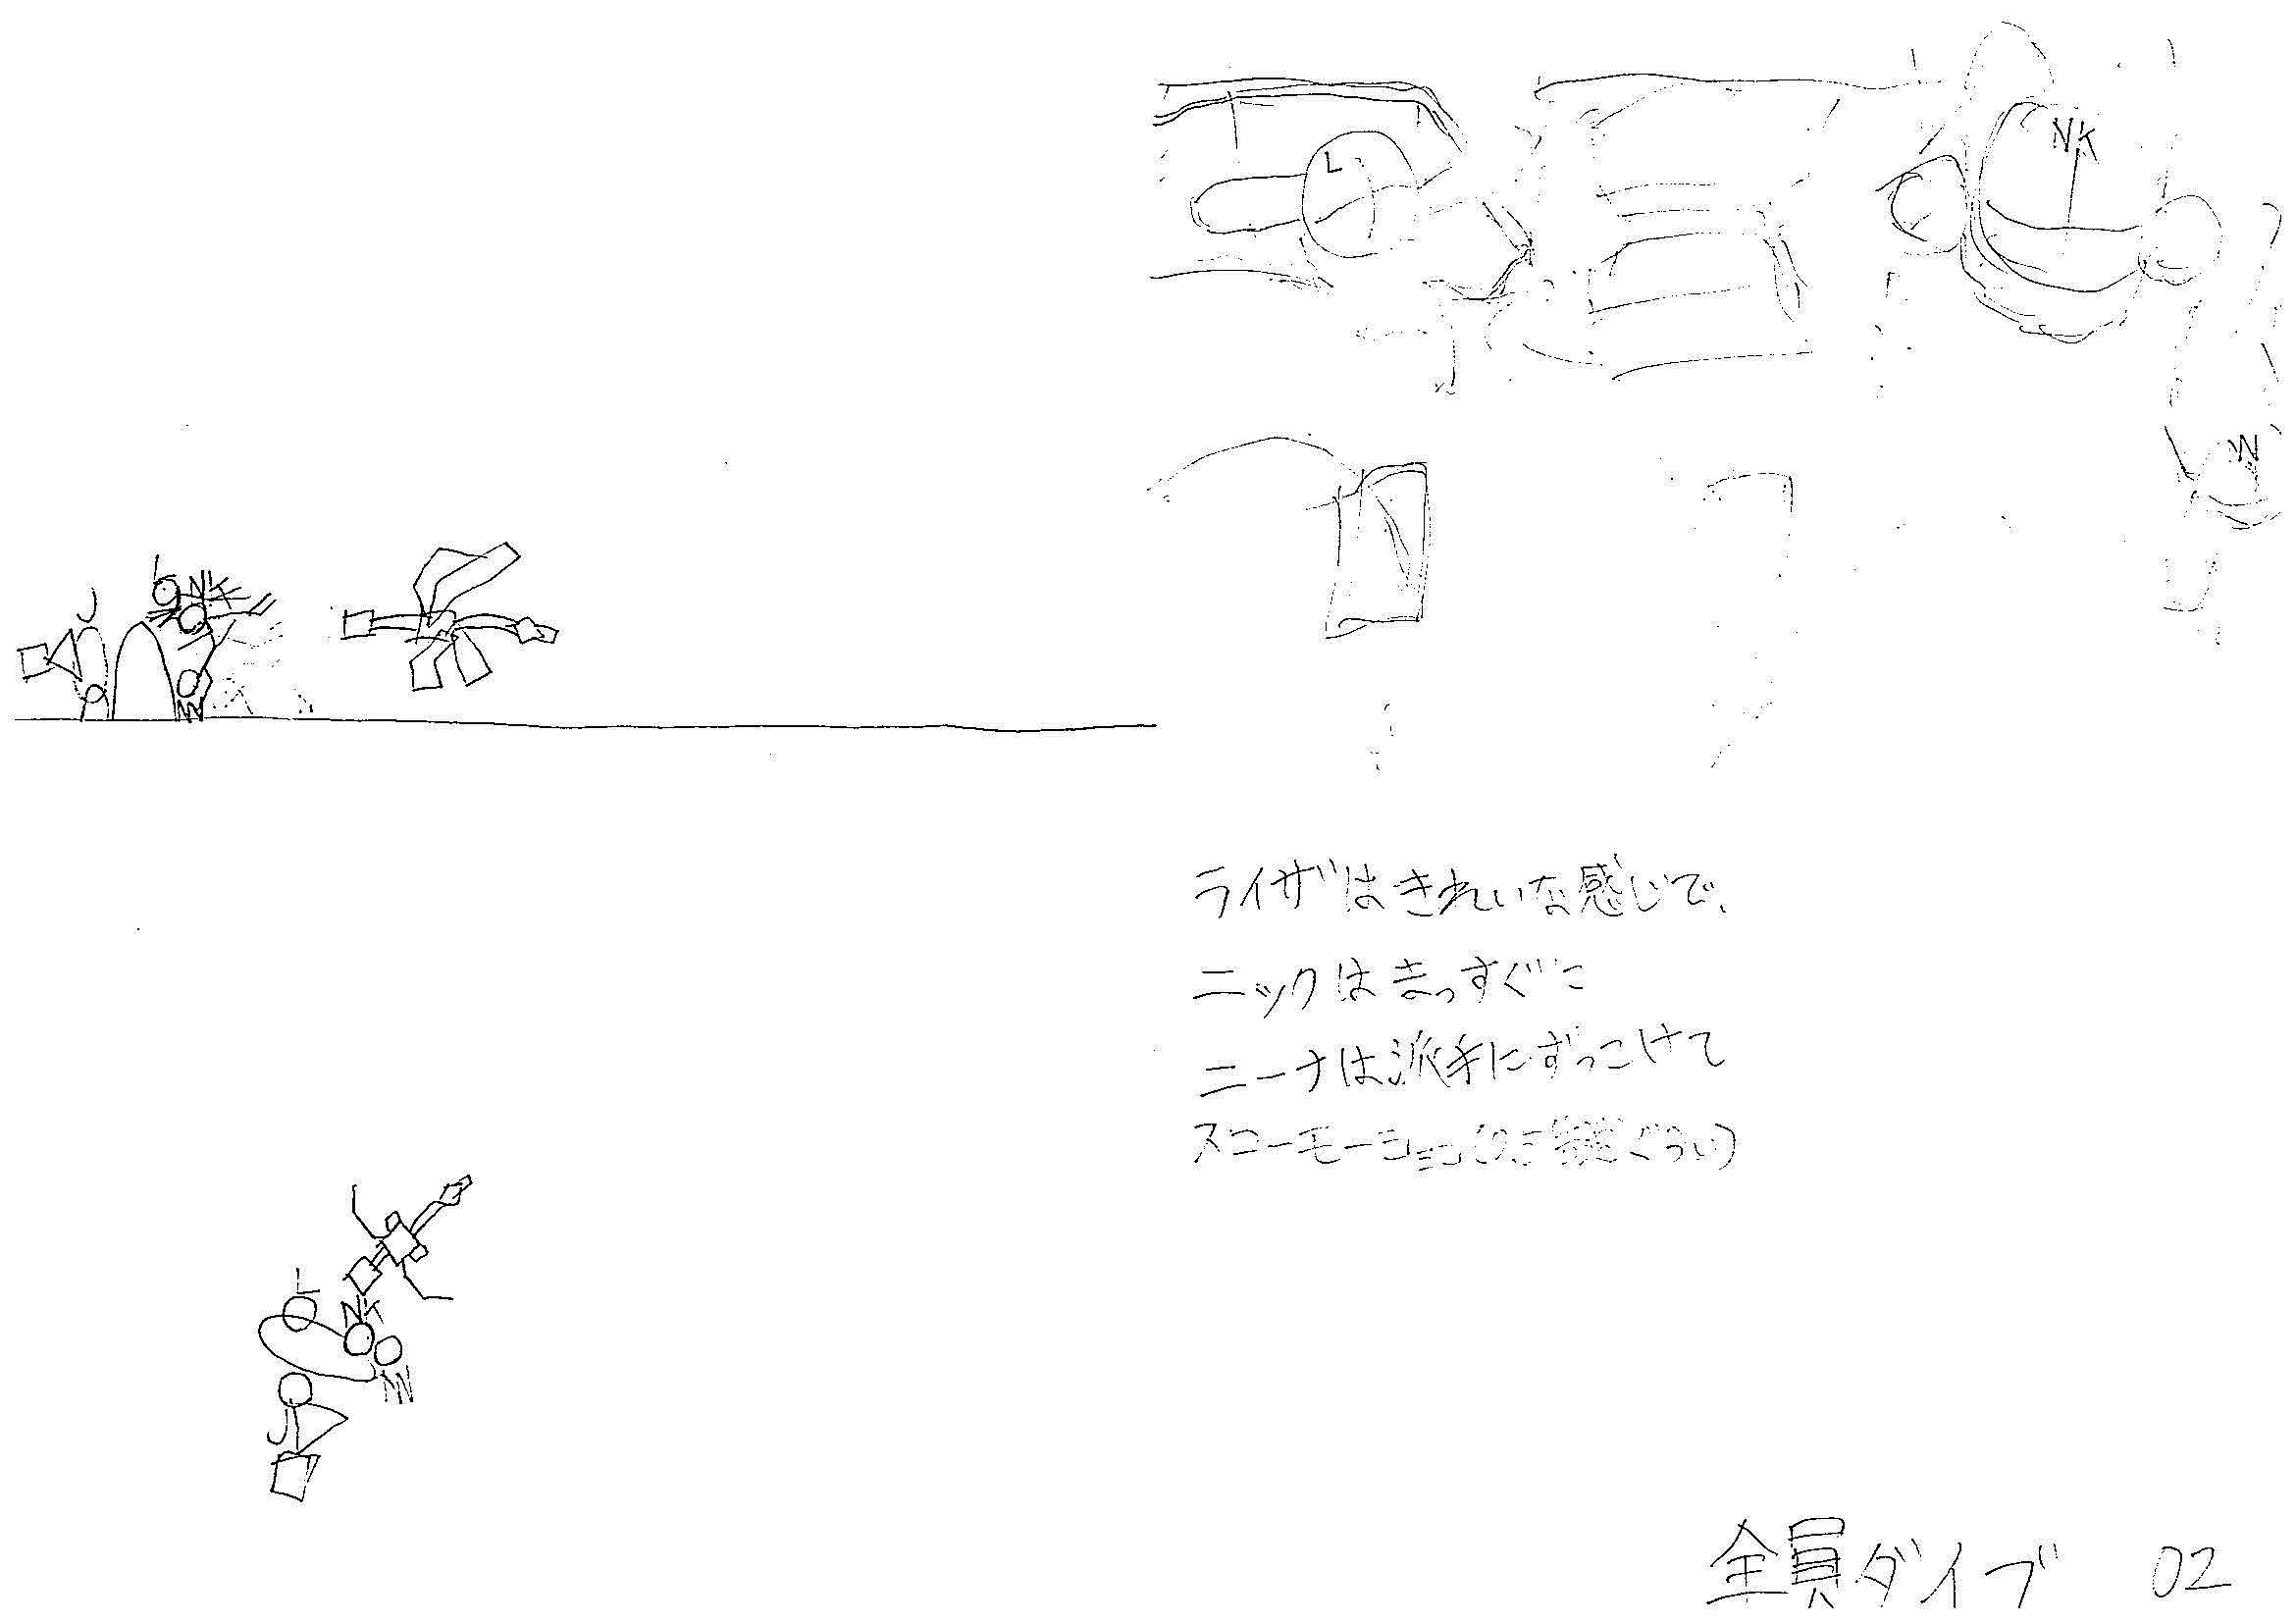 L
NK
W
L
NK
J
N
ライザはきれいな感じで、
ニックはまっすぐに
ニーナは派手にずっこけて
スローモーション
ぐらい)
L
NK
N
J
全員ダイブ 02